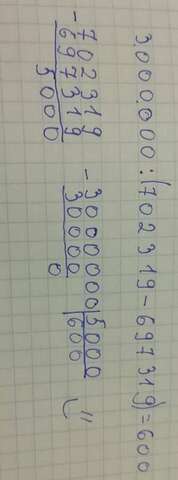 3.000.000:(702319-697319)=600
- 702319
697319
5000
- 3000000|5000
30000|600
0